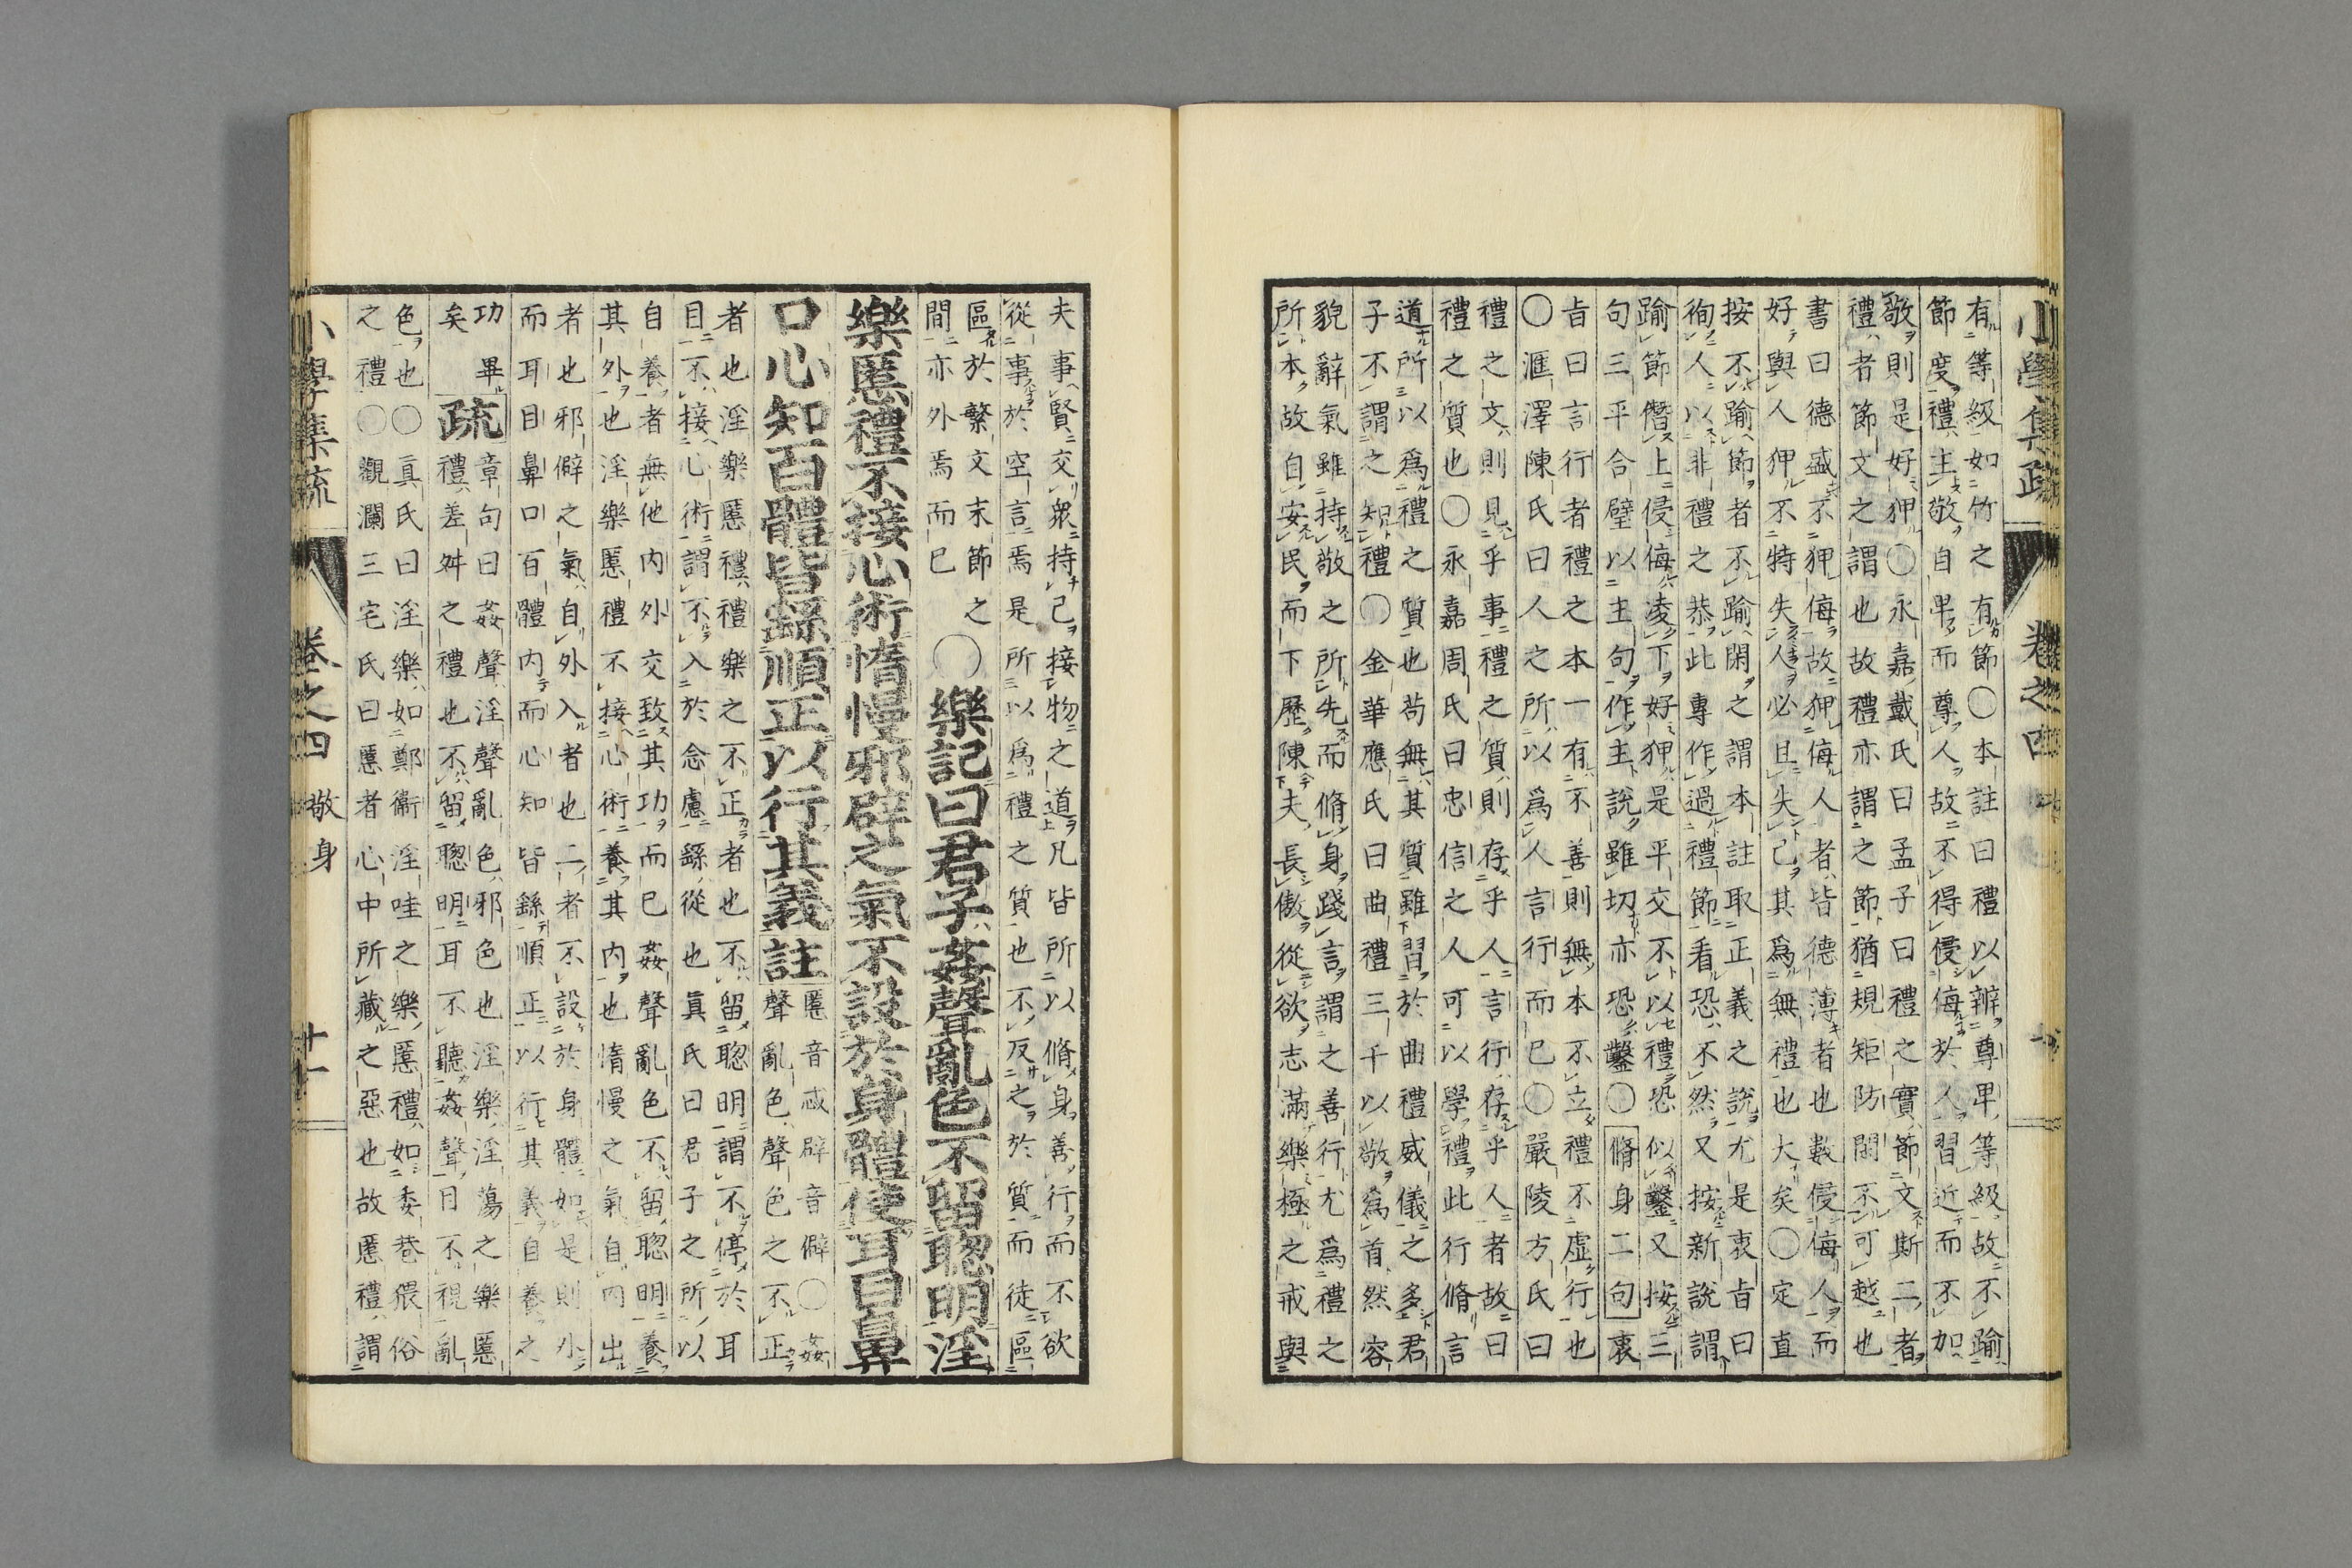 小學集疏 卷之四
有等級如竹之有節〇本註曰禮以辨尊卑等級故不踰
節度禮主敬自卑而尊人故不得侵侮於人習近而不加
敬則是好狎〇永嘉戴氏曰孟子曰禮之實節文斯二者
禮者節文之謂也故禮亦謂之節猶規矩防閑不可越也
書曰德盛不狎侮故狎侮人者皆德薄者也數侵侮人而
好與人狎不特失人必且失己其爲無禮也大矣〇定直
按不踰節者不踰閑之謂本註取正義之說尤是衷旨曰
徇人以非禮之恭此專作過禮節看恐不然又按新說謂
踰節僭上侵侮凌下好狎是平交不以禮恐似鑿又按三
句三平合璧以主句作主說雖切亦恐鑿〇脩身二句衷
旨曰言行者禮之本一有不善則無本不立禮不虛行也
〇滙澤陳氏曰人之所以爲人言行而已〇嚴陵方氏曰
禮之文則見乎事禮之質則存乎人言行存乎人者故曰
禮之質也〇永嘉周氏曰忠信之人可以學禮此行脩言
道所以爲禮之質也苟無其質雖習於曲禮威儀之多君
子不謂之知禮〇金華應氏曰曲禮三千以敬爲首然容
貌辭氣雖持敬之所先而脩身踐言謂之善行尤爲禮之
所本故自安民而下歷陳夫長傲從欲志滿樂極之戒與
夫事賢交衆持己接物之道凡皆所以脩身善行而不欲
從事於空言焉是所以爲禮之質也不反之於質而徒區
區於繁文末節之
間亦外焉而已
〇樂記曰君子姦聲亂色不留聰明淫
樂慝禮不接心術惰慢邪辟之氣不設於身體使耳目鼻
口心知百體皆繇順正以行其義註
慝音忒辟音僻〇姦
聲亂色聲色之不正
者也淫樂慝禮禮樂之不正者也不留聰明謂不停於耳
目不接心術謂不入於念慮繇從也眞氏曰君子之所以
自養者無他內外交致其功而已姦聲亂色不留聰明養
其外也淫樂慝禮不接心術養其內也惰慢之氣自內出
者也邪僻之氣自外入者也二者不設於身體如是則外
而耳目鼻口百體內而心知皆繇順正以行其義自養之
功畢
矣
疏
章句曰姦聲淫聲亂色邪色也淫樂淫蕩之樂慝
禮差舛之禮也不留聰明耳不聽姦聲目不視亂
色也〇眞氏曰淫樂如鄭衞淫哇之樂慝禮如委巷猥俗
之禮〇觀瀾三宅氏曰慝者心中所藏之惡也故慝禮謂
小學集疏 卷之四 敬身 十一